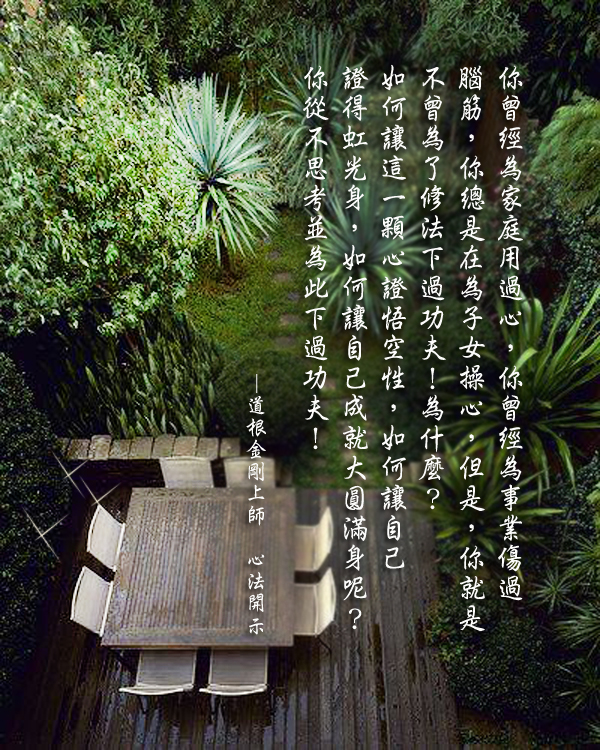 你曾經為家庭用過心，你曾經為事業傷過
腦筋，你總是在為子女操心，但是，你就是
不曾為了修法下過功夫！為什麼？
如何讓這一顆心證悟空性，如何讓自己
證得虹光身，如何讓自己成就大圓滿身呢？
你從不思考並為此下過功夫！
—道根金剛上師　心法開示